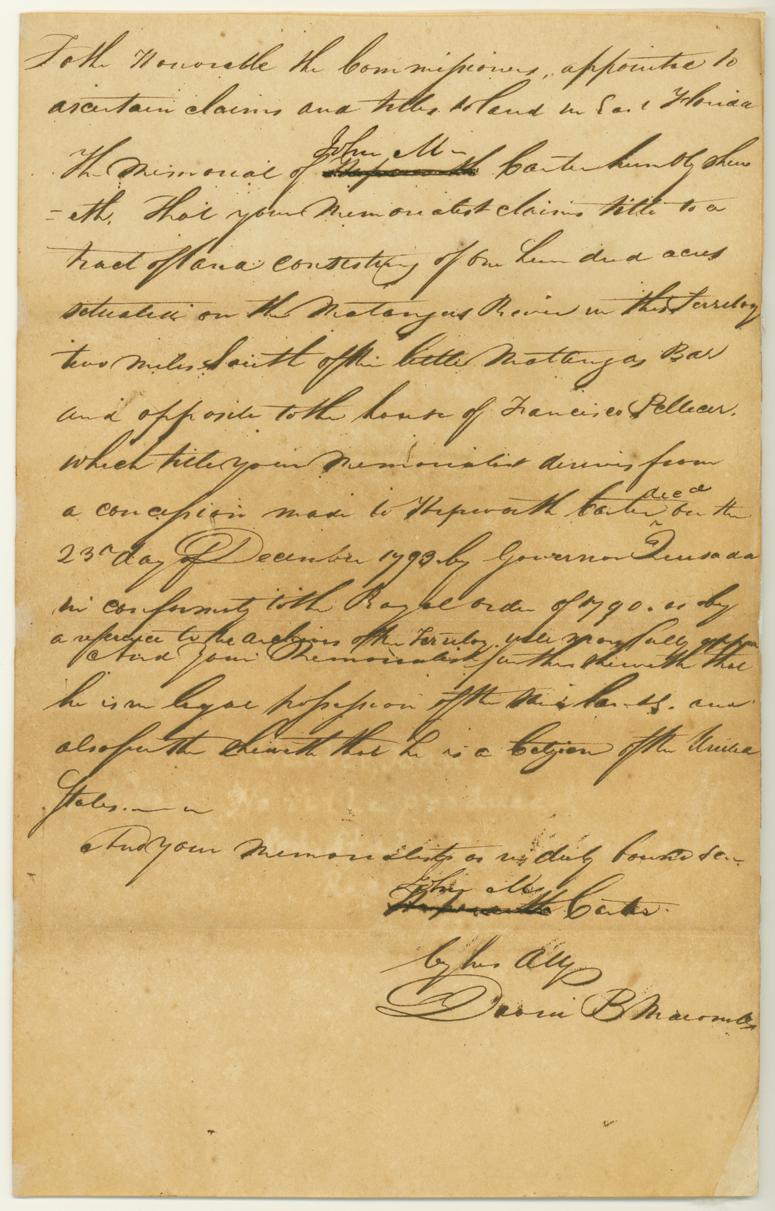 To the Honorable the Commissioners, appointed to
ascertain claims and titles to land in East Florida
John M
The Memorial of Hepworth Carter humbly shew
=eth. That your Memorialist claims title to a
tract of land consisting of one hundred acres
situated on the Matanzas River in this Territory
two miles South of the little Mattanzas Bar
and opposite to the house of Francisco Pellicer.
which title your Memorialist derives from
a concession made to Hepworth Carter decd on the
23rd day of December 1793 by Governor Quesada
in conformity to the Royal order of 1790. as by
a reference to the archives of the Territory will more fully appear
And your Memorialist further sheweth that
he is in legal possession of the said lands. and
also further sheweth that he is a Citizen of the United
States.
And your memorialist as in duty bound &c.
John M
Hepworth Carter.
by his Atty
David B Macomb